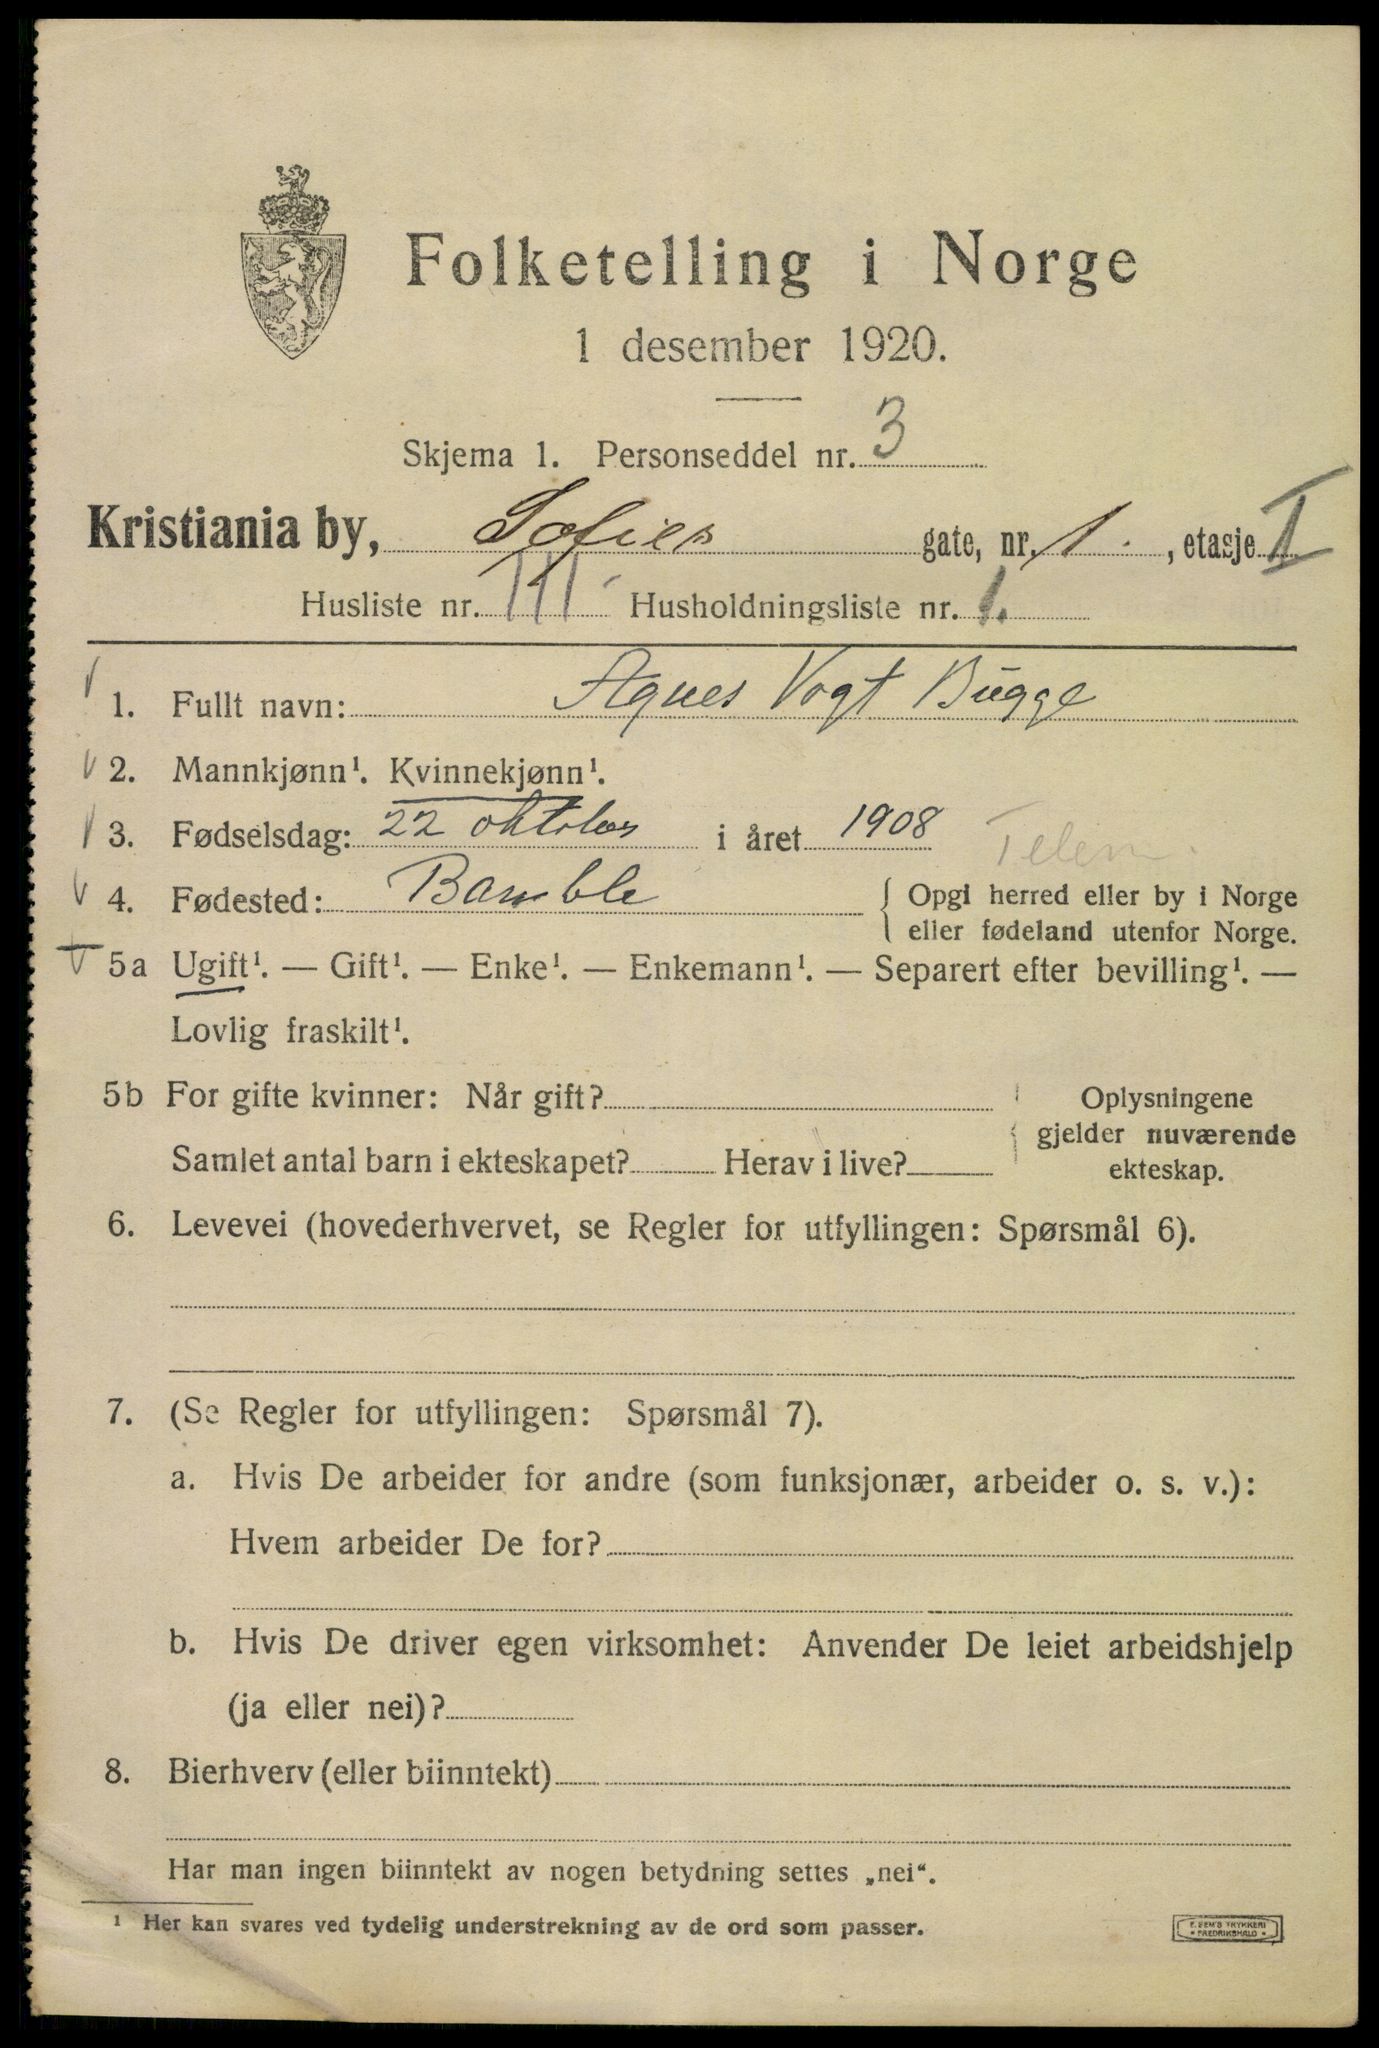 Folketelling i Norge
1 desember 1920.
Skjema 1. Personseddel nr. 3
Kristiania by, Sofies gate, nr. 1. , etasje I
Husliste nr. III. Husholdningsliste nr. 1.
1. Fullt navn: Agnes Vogt Bugge
2. Mannkjønn¹. Kvinnekjønn¹.
3. Fødselsdag: 22 oktober i året 1908
Telem.
4. Fødested: Bamble { Opgi herred eller by i Norge
eller fødeland utenfor Norge.
5a Ugift¹. — Gift¹. — Enke¹. — Enkemann¹. — Separert efter bevilling¹. —
Lovlig fraskilt¹.
5b For gifte kvinner: Når gift? Oplysningene
gjelder nuværende
Samlet antal barn i ekteskapet? Herav i live? ekteskap.
6. Levevei (hovederhvervet, se Regler for utfyllingen: Spørsmål 6).
7. (Se Regler for utfyllingen: Spørsmål 7).
a. Hvis De arbeider for andre (som funksjonær, arbeider o. s. v.):
Hvem arbeider De for?
b. Hvis De driver egen virksomhet: Anvender De leiet arbeidshjelp
(ja eller nei)?
8. Bierhverv (eller biinntekt)
Har man ingen biinntekt av nogen betydning settes „nei“.
¹ Her kan svares ved tydelig understrekning av de ord som passer.
E. SEM'S TRYKKERI
* FREDRIKSHALD *